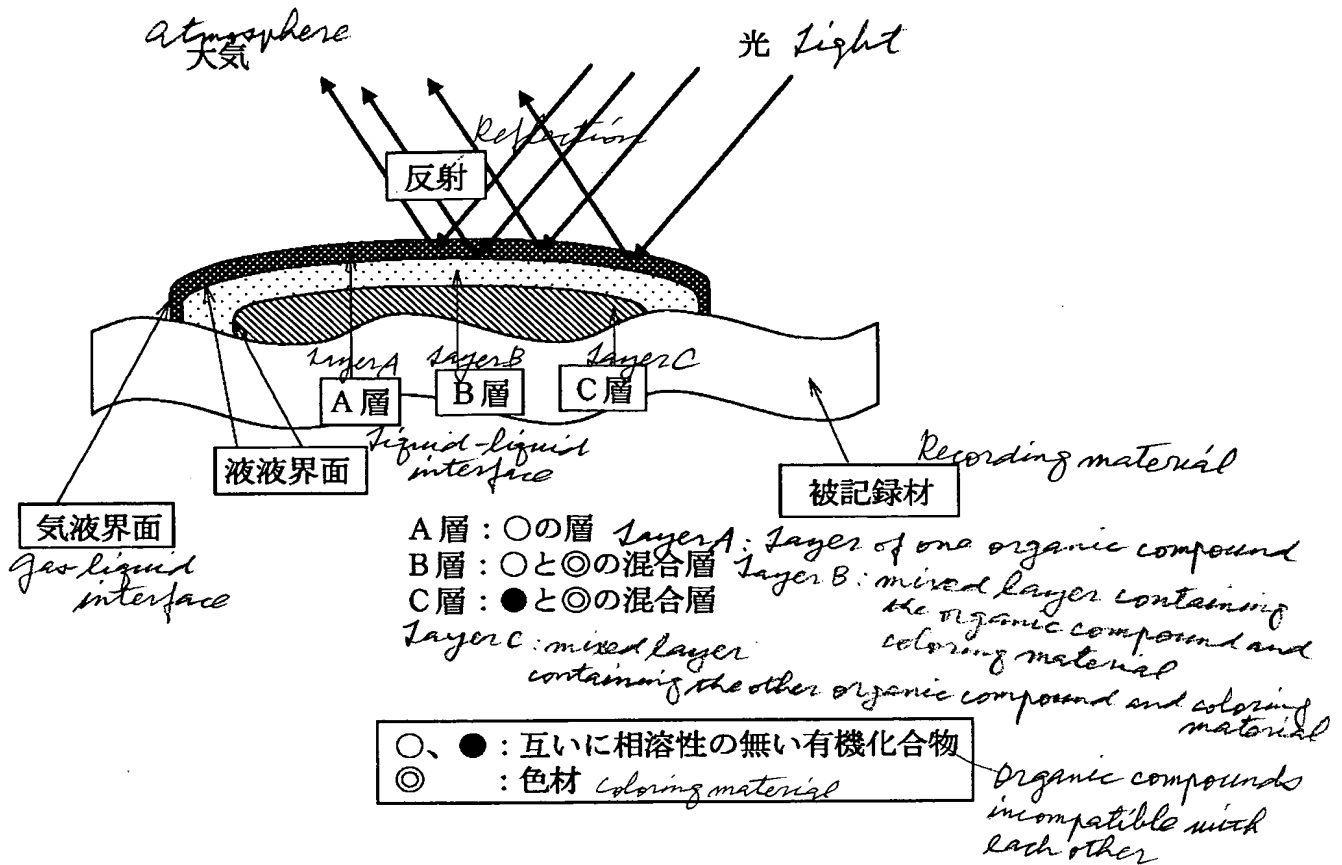 atmosphere
大気
光 Light
Reflection
反射
Layer A
Layer B
Layer C
A層
B層
C層
Liquid-liquid
interface
液液界面
Recording material
被記録材
気液界面
Gas liquid
interface
A層：○の層 Layer A: Layer of one organic compound
B層：○と◎の混合層 Layer B: mixed layer containing
the organic compound and
coloring material
C層：●と◎の混合層
Layer C: mixed layer
containing the other organic compound and coloring
material
○、●：互いに相溶性の無い有機化合物
◎　　：色材 coloring material
Organic compounds
incompatible with
each other